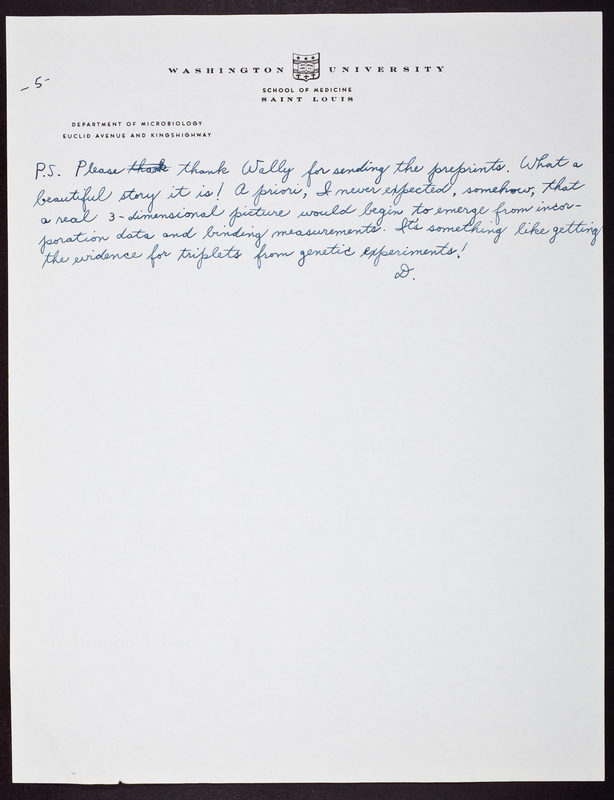 -5-
WASHINGTON UNIVERSITY
SCHOOL OF MEDICINE
SAINT LOUIS
DEPARTMENT OF MICROBIOLOGY
EUCLID AVENUE AND KINGSHIGHWAY
P.S. Please thank thank Wally for sending the preprints. What a
beautiful story it is! A priori, I never expected, somehow, that
a real 3-dimensional picture would begin to emerge from incor-
poration data and binding measurements. It's something like getting
the evidence for triplets from genetic experiments!
D.